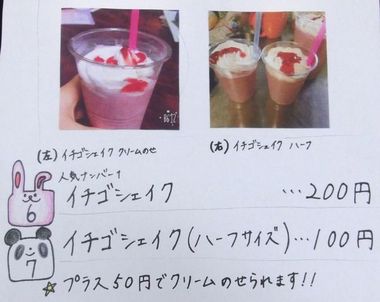 (左) イチゴシェイク クリームのせ
(右) イチゴシェイク ハーフ
人気ナンバー1
6 イチゴシェイク …200円
7 イチゴシェイク(ハーフサイズ)…100円
☆プラス50円でクリームのせられます!!